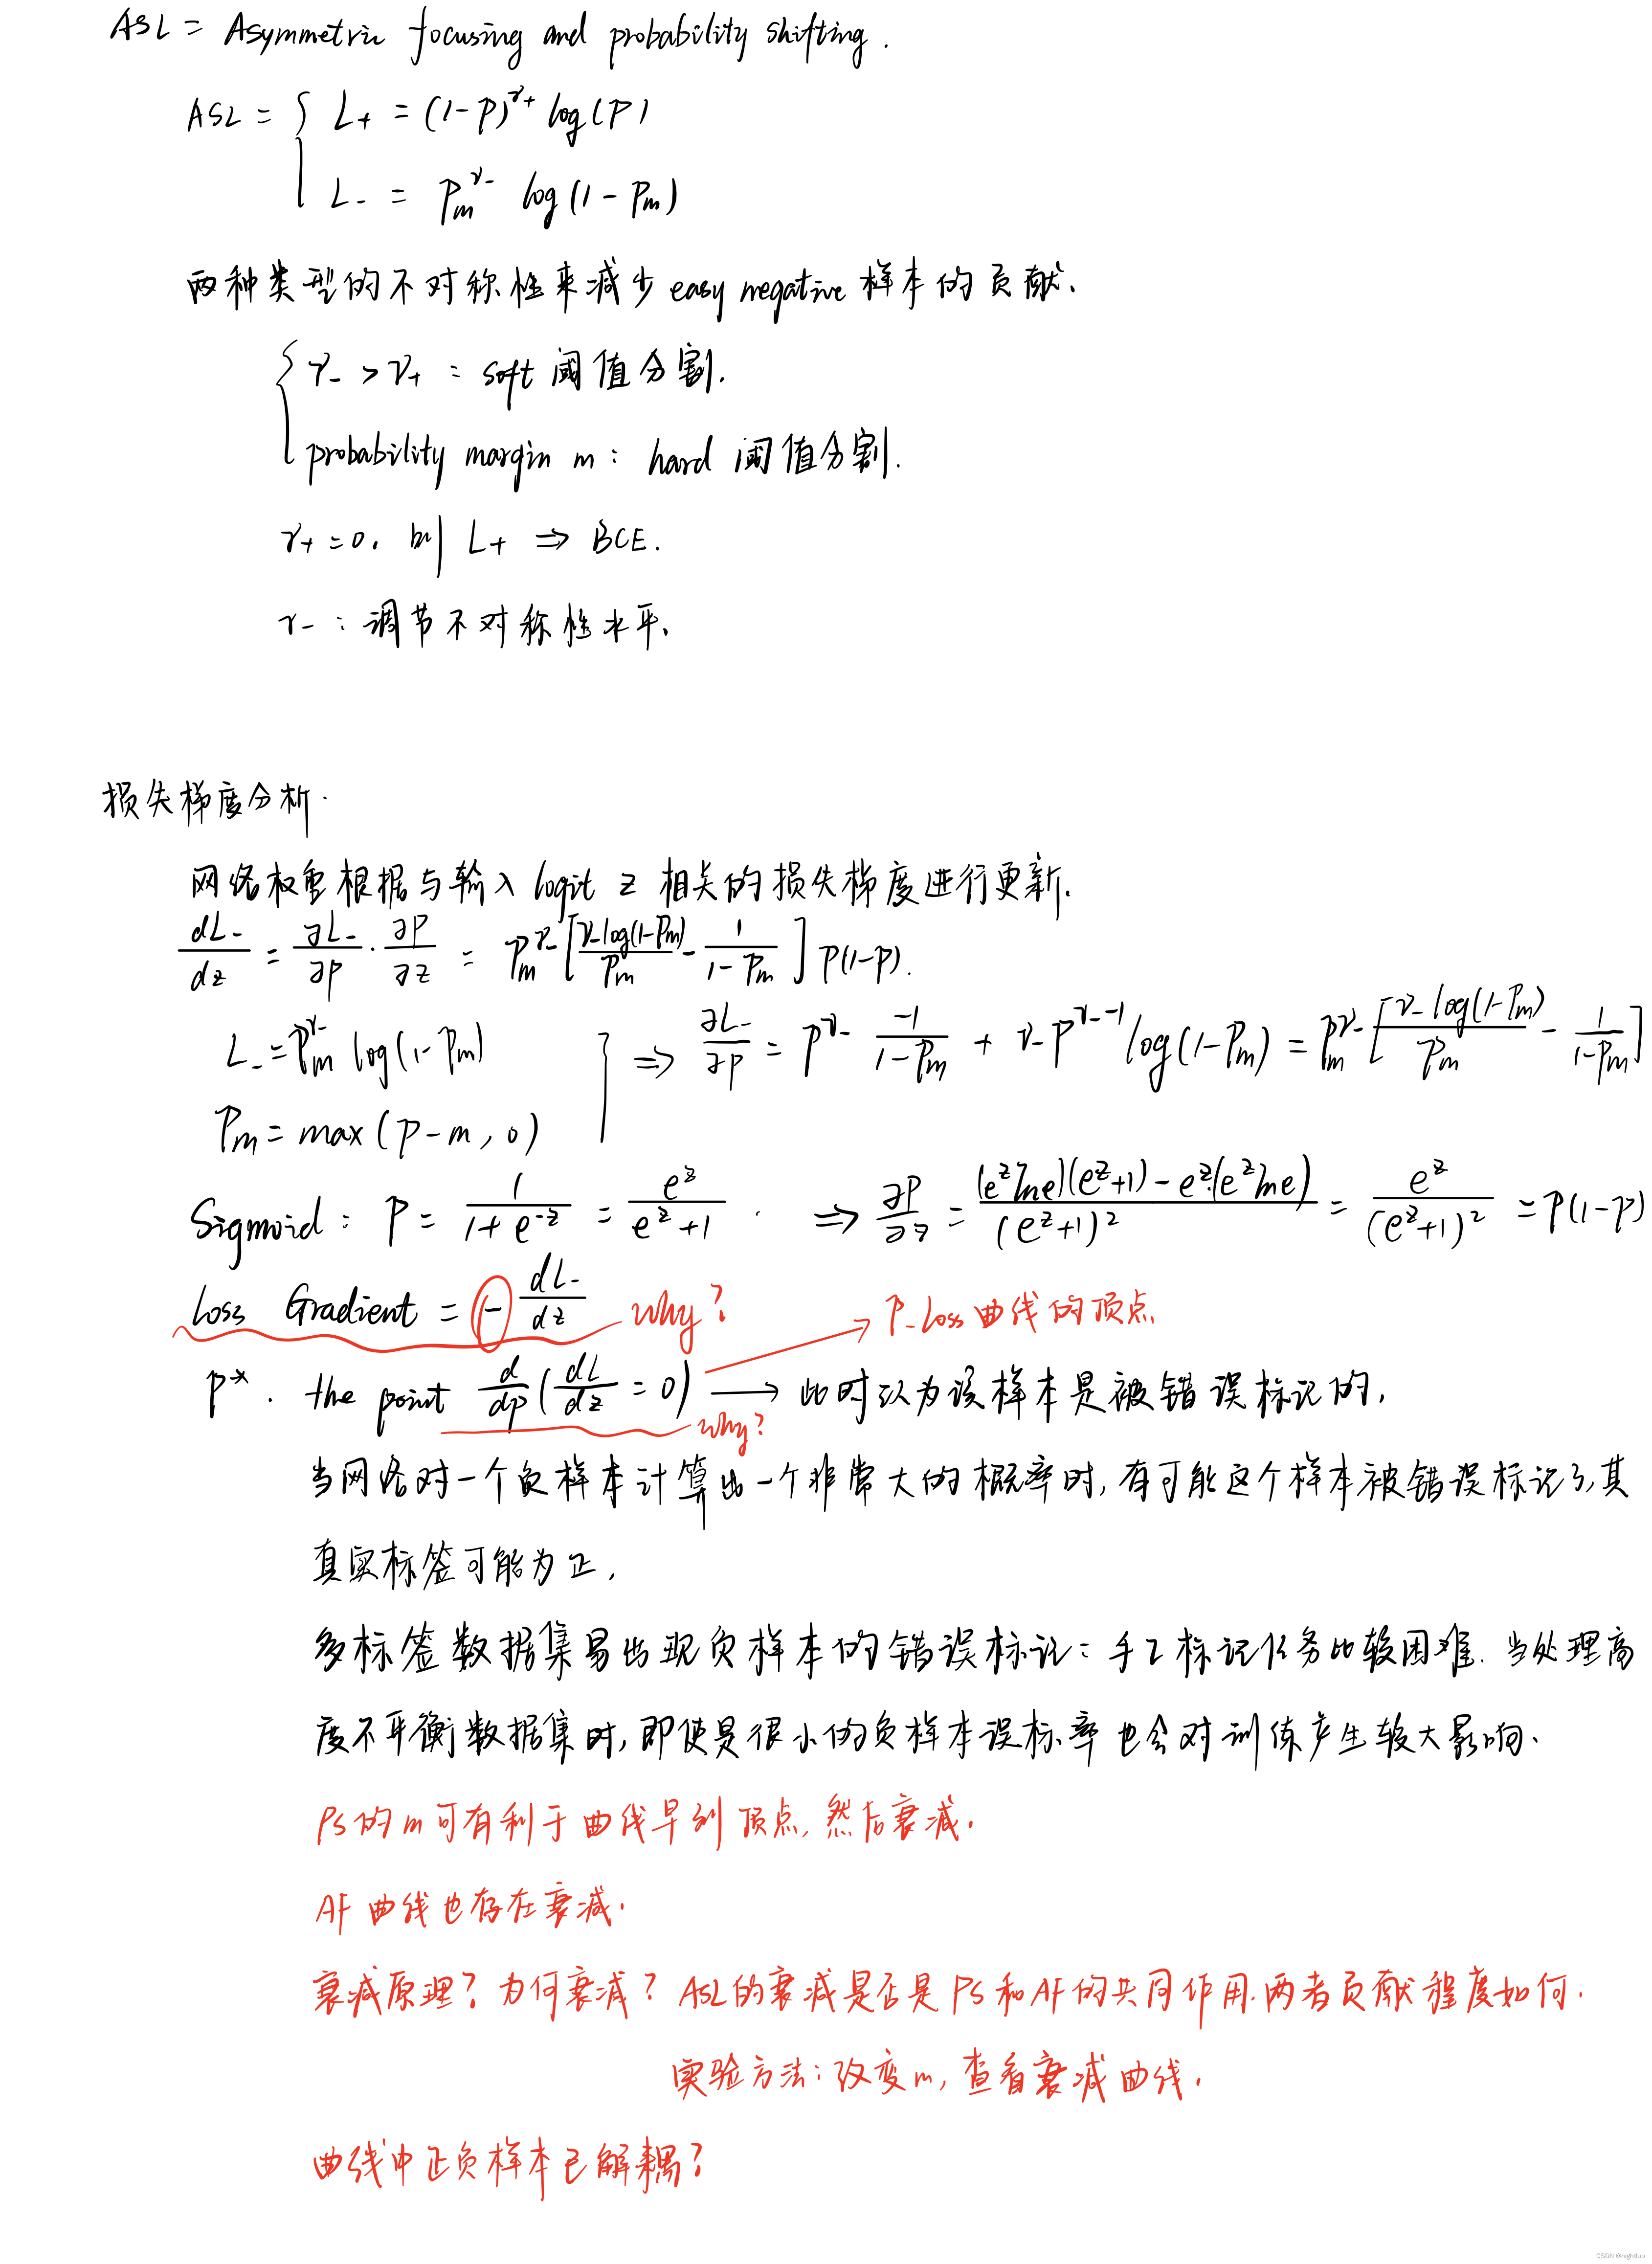 ASL = Asymmetric focusing and probability shifting.
ASL = { L+ = (1-p)^γ+ log(p)
L- = Pm^γ- log(1-Pm)
两种类型的不对称性来减少 easy negative 样本的贡献.
{ γ- > γ+ : soft 阈值分割.
probability margin m : hard 阈值分割.
γ+ = 0. 则 L+ ⇒ BCE.
γ- : 调节不对称性水平.
损失梯度分析.
网络权重根据与输入 logit z 相关的损失梯度进行更新.
dL-/dz = ∂L-/∂p · ∂p/∂z = Pm^γ- [γ- log(1-Pm)/Pm - 1/(1-Pm)] p(1-p).
L- = Pm^γ- log(1-Pm) ] ⇒ ∂L-/∂p = p^γ- (-1)/(1-Pm) + γ- p^(γ- -1) log(1-Pm) = Pm^γ- [γ- log(1-Pm)/Pm - 1/(1-Pm)]
Pm = max(p-m, 0)
Sigmoid : p = 1/(1+e^-z) = e^z/(e^z+1) . ⇒ ∂p/∂z = ((e^z lne)(e^z+1) - e^z·(e^z lne))/(e^z+1)^2 = e^z/(e^z+1)^2 = p(1-p)
Loss Gradient = - dL-/dz why?
P-Loss 曲线的顶点
p* . the point d/dp (dL/dz = 0) → 此时认为该样本是被错误标记的,
why?
当网络对一个负样本计算出一个非常大的概率时, 有可能这个样本被错误标记了, 其
真实标签可能为正,
多标签数据集易出现负样本的错误标记: 手工标记任务比较困难. 当处理高
度不平衡数据集时, 即使是很小的负样本误标率也会对训练产生较大影响.
PS的m可有利于曲线早到顶点, 然后衰减.
AF 曲线也存在衰减.
衰减原理? 为何衰减? ASL的衰减是否是PS和AF的共同作用. 两者贡献程度如何.
实验方法: 改变m, 查看衰减曲线.
曲线中正负样本已解耦?
CSDN @nightluo